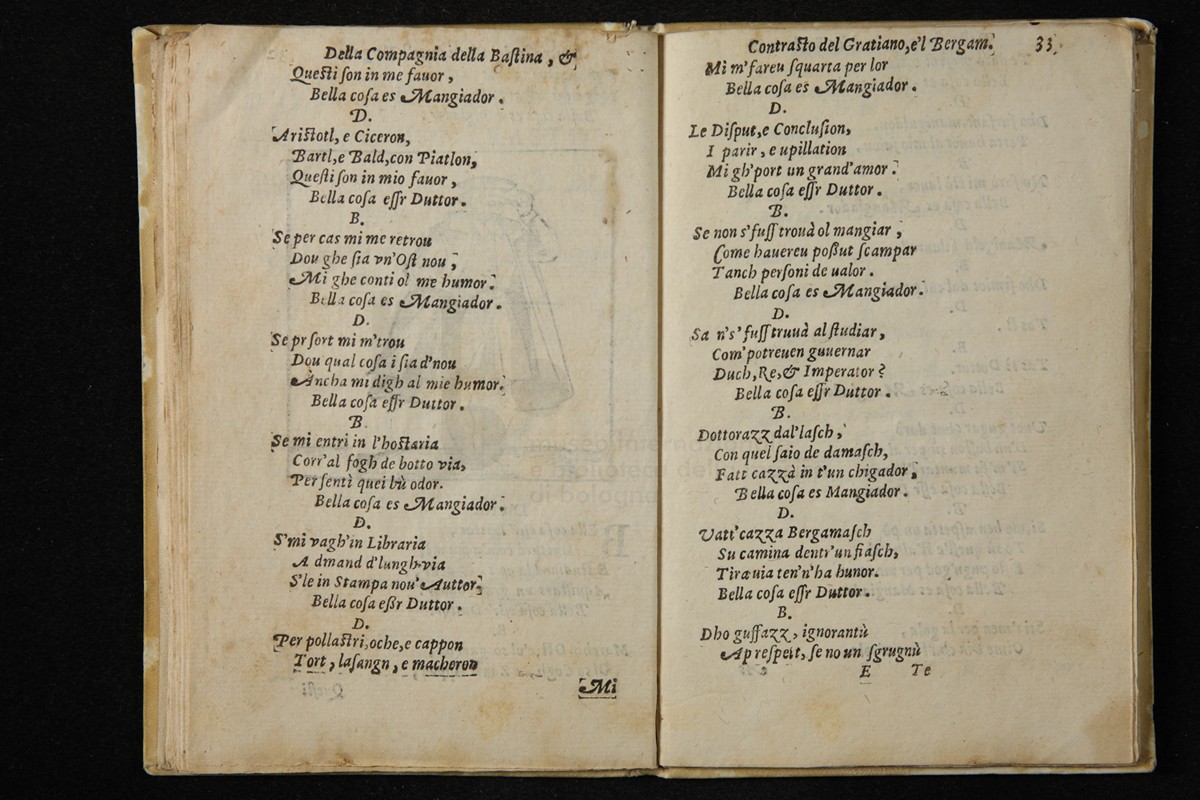 Della Compagnia della Baſtina, &
Queſti ſon in me fauor,
Bella coſa es Mangiador.
D.
Ariſtotl, e Ciceron,
Bartl, e Bald, con Piatlon,
Queſti ſon in mio fauor,
Bella coſa eſſr Duttor.
B.
Se per cas mi me retrou
Dou ghe ſia vn'Oſt nou,
Mi ghe conti ol me humor.
Bella coſa es Mangiador.
D.
Se pr ſort mi m'trou
Dou qual coſa i ſia d'nou
Ancha mi digh al mie humor.
Bella coſa eſſr Duttor.
B.
Se mi entri in l'hoſtaria
Corr'al fogh de botto via,
Per ſentì quei bù odor.
Bella coſa es Mangiador.
D.
S'mi vagh'in Libraria
A dmand d'lungh via
S'le in Stampa nou' Auttor,
Bella coſa eßr Duttor.
D.
Per pollaſtri, oche, e cappon
Tort, laſangn, e macheron
Mi
Contraſto del Gratiano, e'l Bergam. 33
Mi m'fareu ſquarta per lor
Bella coſa es Mangiador.
D.
Le Diſput, e Concluſion,
I parir, e upillation
Mi gh'port un grand'amor.
Bella coſa eſſr Duttor.
B.
Se non s'fuſſ trouà ol mangiar,
Come hauereu poßut ſcampar
Tanch perſoni de ualor.
Bella coſa es Mangiador.
D.
Sa n's'fuſſ truuà al ſtudiar,
Com'potreuen guuernar
Duch, Re, & Imperator?
Bella coſa eſſr Duttor.
B.
Dottorazz dal'laſch,
Con quel ſaio de damaſch,
Fatt cazzà in t'un chigador,
Bella coſa es Mangiador.
D.
Vatt'cazza Bergamaſch
Su camina dentr'un fiaſch,
Tirauia ten'n'ha hunor.
Bella coſa eſſr Duttor.
B.
Dho guffazz, ignorantù
Ap reſpett, ſe no un ſgrugnù
E Te